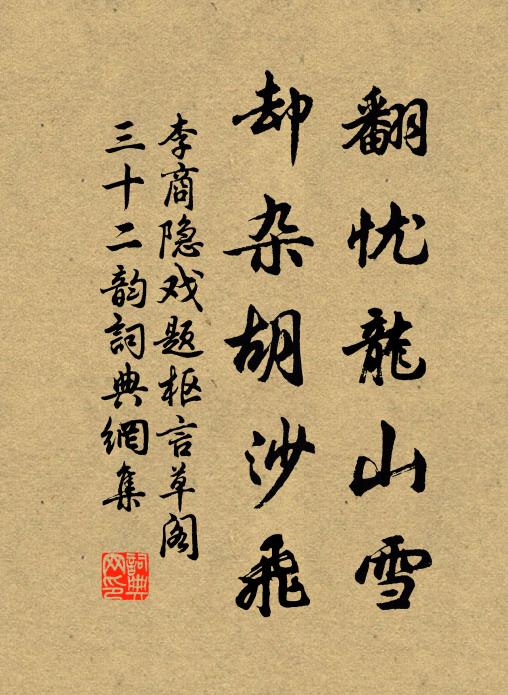 翻忧龍山雪
却杂胡沙飛
李商隐戏题枢言草阁
三十二韵詞典網集
詞典网印